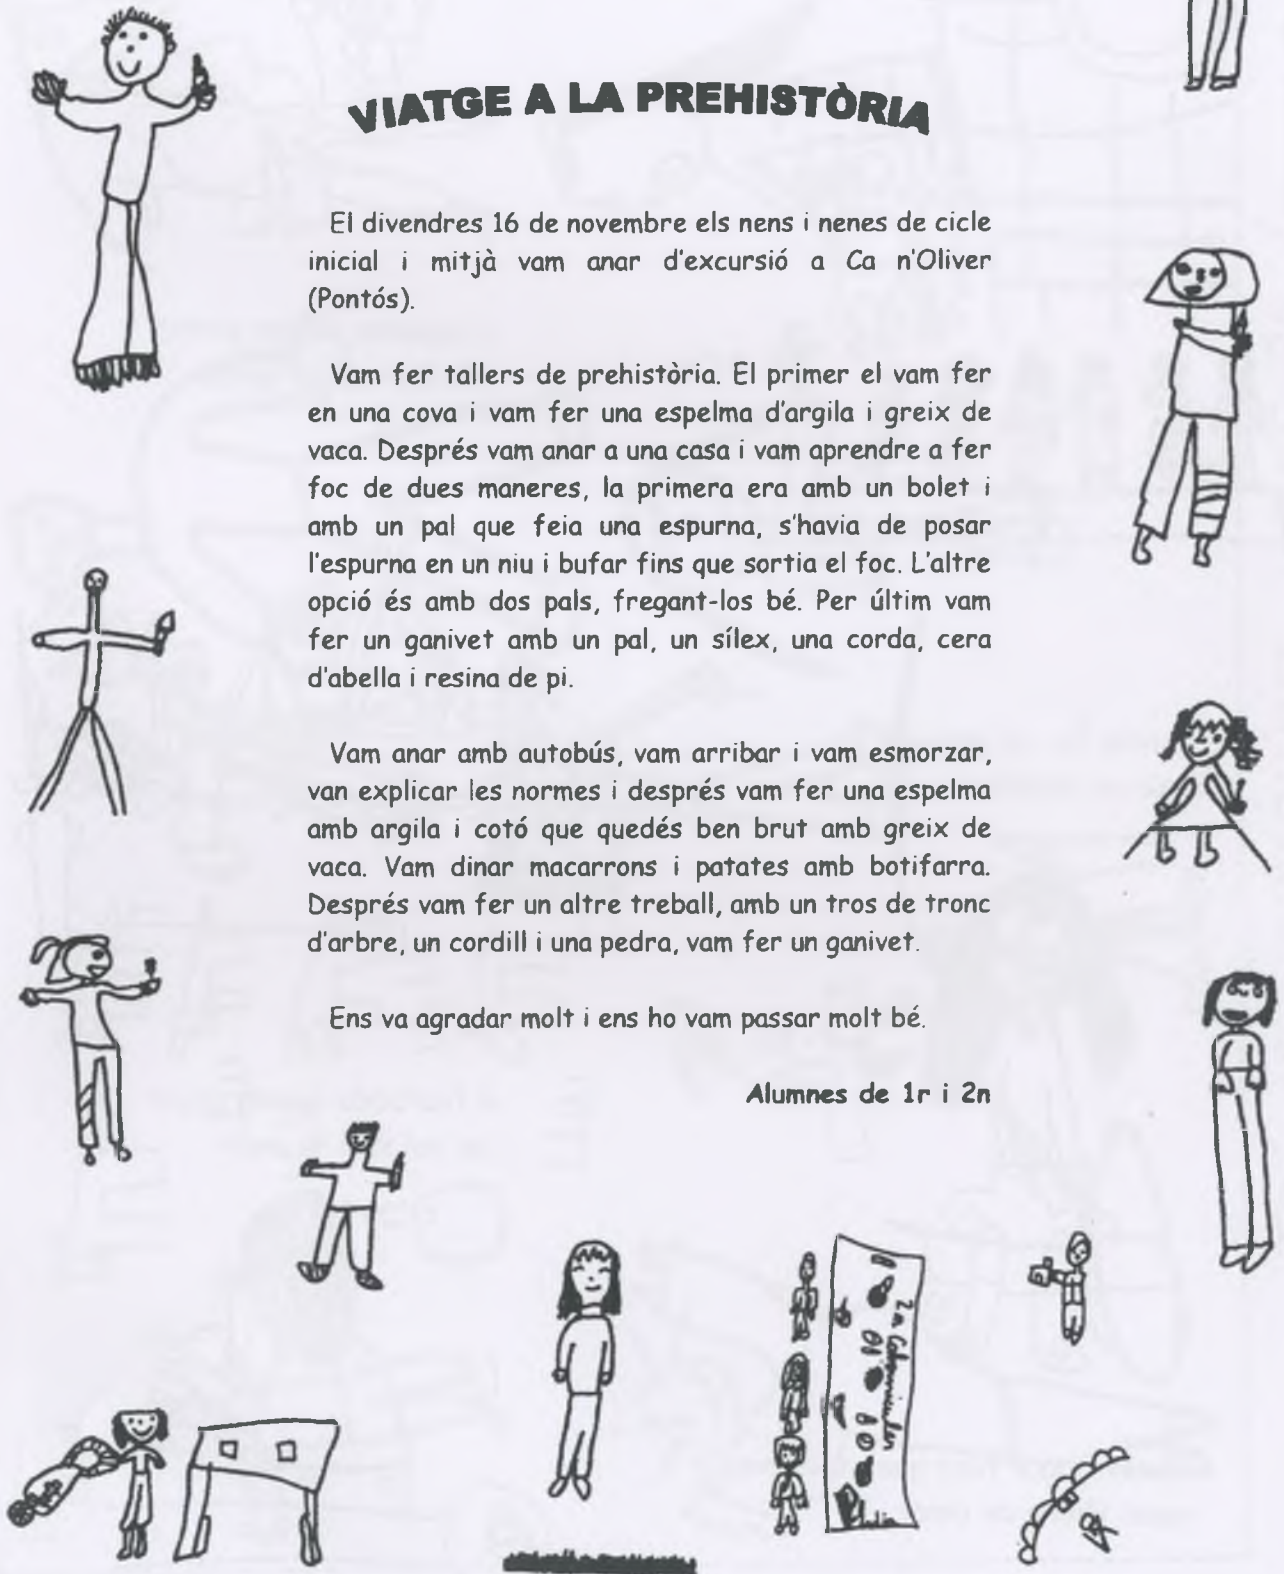 VIATGE A LA PREHISTÒRIA
El divendres 16 de novembre els nens i nenes de cicle
inicial i mitjà vam anar d'excursió a Ca n'Oliver
(Pontós).
Vam fer tallers de prehistòria. El primer el vam fer
en una cova i vam fer una espelma d'argila i greix de
vaca. Després vam anar a una casa i vam aprendre a fer
foc de dues maneres, la primera era amb un bolet i
amb un pal que feia una espurna, s'havia de posar
l'espurna en un niu i bufar fins que sortia el foc. L'altre
opció és amb dos pals, fregant-los bé. Per últim vam
fer un ganivet amb un pal, un sílex, una corda, cera
d'abella i resina de pi.
Vam anar amb autobús, vam arribar i vam esmorzar,
van explicar les normes i després vam fer una espelma
amb argila i cotó que quedés ben brut amb greix de
vaca. Vam dinar macarrons i patates amb botifarra.
Després vam fer un altre treball, amb un tros de tronc
d'arbre, un cordill i una pedra, vam fer un ganivet.
Ens va agradar molt i ens ho vam passar molt bé.
Alumnes de 1r i 2n